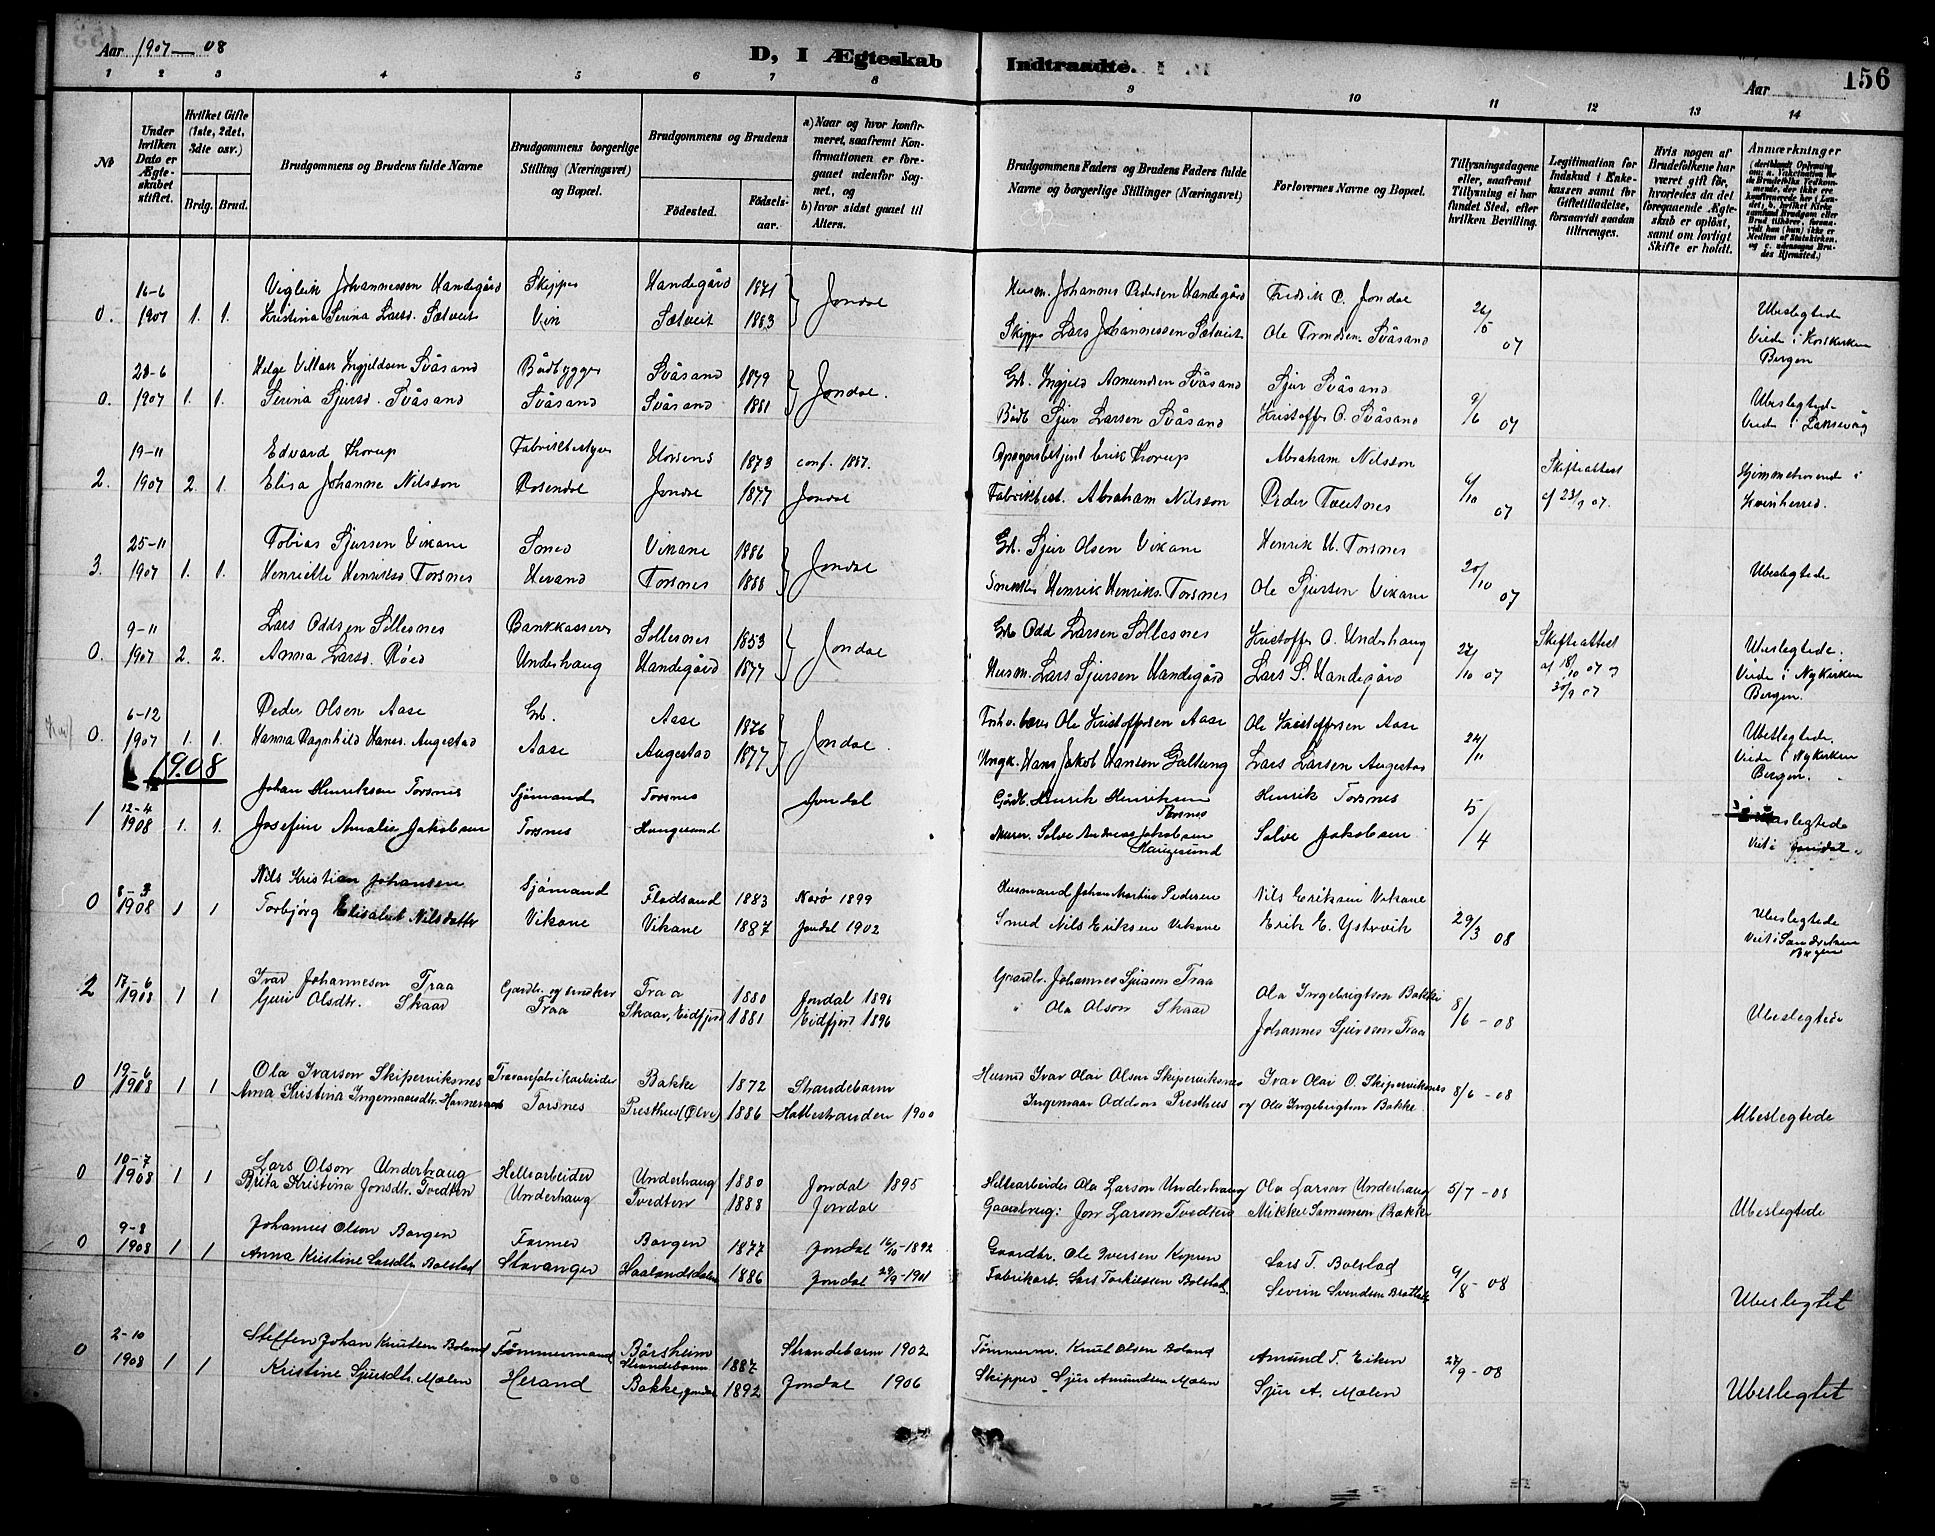 Aar 1907—08
D, I Ægteskab Indtraadte.
Aar 156
1 2 3 4 5 6 7 8 9 10 11 12 13 14
No
Under hvilken Dato er Ægteskabet stiftet.
Hvilket Gifte (1ste, 2det, 3die osv.)
Brdg. Brud.
Brudgommens og Brudens fulde Navne
Brudgommens borgerlige Stilling (Næringsvei) og Bopæl.
Brudgommens og Brudens
Fødested.
Fødselsaar.
a) Naar og hvor konfirmeret, saafremt Konfirmationen er foregaaet udenfor Sognet, og
b) hvor sidst gaaet til Alters.
Brudgommens Faders og Brudens Faders fulde Navne og borgerlige Stillinger (Næringsvei)
Forlovernes Navne og Bopæl.
Tillysningsdagene eller, saafremt Tillysning ei har fundet Sted, efter hvilken Bevilling.
Legitimation for Indskud i Enkekassen samt for Giftetilladelse, forsaavidt saadan tiltrænges.
Hvis nogen af Brudefolkene har været gift før, hvorledes da det foregaaende Ægteskab er opløst, samt om lovligt Skifte er holdt.
Anmærkninger
16-6 Viglik Johannessen Handegård Skipper Handegård 1871 Jondal Husm. Johannes Pedersen Handegård Fredrik P. Jondal 26/5 07 Ubeslegtede
0. 1907 1. 1. Kristina Serina Larsd. Sætveit Vik Sætveit 1883 Skipper Lars Johannessen Sætveit Ole Trondsen Svåsand Viede i Korskirken Bergen
23-6 Helge Villars Ingjeldsen Svåsand Bådbygger Svåsand 1879 Jondal. Gb. Ingjeld Amundsen Svåsand Sjur Svåsand 9/6 07 Ubeslegtede
0. 1907 1. 1. Serina Sjursd. Svåsand Svåsand Svåsand 1881 Bådb. Sjur Larsen Svåsand Kristoffer O. Svåsand Viede i Laksevåg
19-11 Edvard Thorup Horsens 1873 conf. 1887. Erik Thorup Abraham Nilsson 6/10 07 Skifteattest Hjemmehørende i
2. 1907 2. 1. Elisa Johanne Nilsson Rosendal Jondal 1877 Jondal Fabrikbest. Abraham Nilsson Peder Tveitnes af 23/9 07. Kvinherred.
25-11 Tobias Sjursen Vikane Smed Vikane 1886 Jondal Gb. Sjur Olsen Vikane Henrik H. Torsnes 20/10 07 Ubeslegtede
3. 1907 1. 1. Henriette Henriksd. Torsnes Herand Torsnes 1888 Henrik Henriks. Torsnes Ole Sjursen Vikane
9-11 Lars Oddsen Sollesnes Bankkasserer Sollesnes 1853 Jondal Gb. Odd Larsen Sollesnes Kristoffer O. Underhaug 27/10 07 Skifteattest Ubeslegtede.
0. 1907 2. 2. Anna Larsd. Røed Underhaug Handegård 1877 Husm. Lars Sjursen Handegård Lars S. Handegård af 18/10 07 og 30/9 07 Viede i Nykirken Bergen.
6-12 Peder Olsen Aase Gb. Aase 1876 Jondal. Ole Kristoffersen Aase Ole Kristoffersen Aase 24/11 Ubeslegtede.
0. 1907 1. 1. Hanna Ragnhild Hansd. Augestad Aase Augestad 1877 Ungk. Hans Jakob Hansen Galtung Lars Larsen Augestad Viede i Nykirken Bergen.
1908
12-4 Johan Henriksen Torsnes Sjømand Torsnes Jondal Gårdb. Henrik Henriksen Torsnes Henrik Torsnes 5/4
1 1908 1. 1. Josefine Amalie Jakobsen Torsnes Haugesund Murer. Salve Andreas Jakobsen Haugesund Salve Jakobsen Ubeslegtede Viet i Jondal.
8-3 Nils Kristian Johansen Sjømand Fladsand 1883 1899 Husmand Johan Martin Pedersen Nils Eriksen Vikane 29/3 08 Ubeslegtede
0 1908 1 1 Torbjörg Elisabet Nilsdatter Vikane Vikane 1887 Jondal 1902 Smed Nils Eriksen Vikane Erik E. Ystevik Viet i Sandviken Bergen
17-6 Ivar Johanneson Traa Gardbr. og snedker Traa 1880 Jondal 1896 Gaardbr. Johannes Sjurson Traa Ola Ingebrigtson Bakke 8/6-08 Ubeslegtede
2 1908 1 1 Guri Olsdtr. Skaar Traa Skaar, Eidfjord 1881 Eidfjord 1896 " Ola Olson Skaar Johannes Sjurson Traa
19-6 Ola Ivarson Skiperviksnes Bakke 1872 Strandebarm Husmd Ivar Olai Olson Skiperviksnes Ivar Olai O. Skiperviksnes 8/6-08 Ubeslegtede
0 1908 1 1 Anna Kristina Ingemarsdtr. Torsnes Presthus (Ølve) 1886 Hattestranden 1900 Ingemar Oddson Presthus og Ola Ingebrigtson Bakke
10-7 Lars Olson Underhaug Hellearbeider Underhaug 1880 Jondal 1895 Hellearbeider Ola Larson Underhaug Ola Larson Underhaug 5/7-08 Ubeslegtede
0 1908 1 1 Brita Kristina Jonsdtr. Tvedten Underhaug Tvedten 1888 Jondal Gaardbrug: Jon Larson Tvedten Mikkel Samunson Bakke
9-8 Johannes Olson Borgen Farmer Borgen 1877 Jondal 16/10-1892 Gaardbr. Ole Iversen Kopren Lars T. Bolstad 9/8-08 Ubeslegtet
0 1908 1 1 Anna Kristine Larsdtr. Bolstad Stavanger Haalandsdalen 1886 Jondal 29/9-1901 Fabrikarb. Lars Torkilssen Bolstad Severin Svendsen
2-10 Steffen Johan Knutsen Boland Tømmermand Børsheim Strandebarm 1887 Strandebarm 1902 Tømmerm. Knut Olsen Boland Amund T. Eiken 27/9-08 Ubeslegtet
0 1908 1 1 Kristine Sjursdtr. Mælen Herand Bakke, Jondal 1892 Jondal 1906 Skipper Sjur Amundsen Mælen Sjur A. Mælen